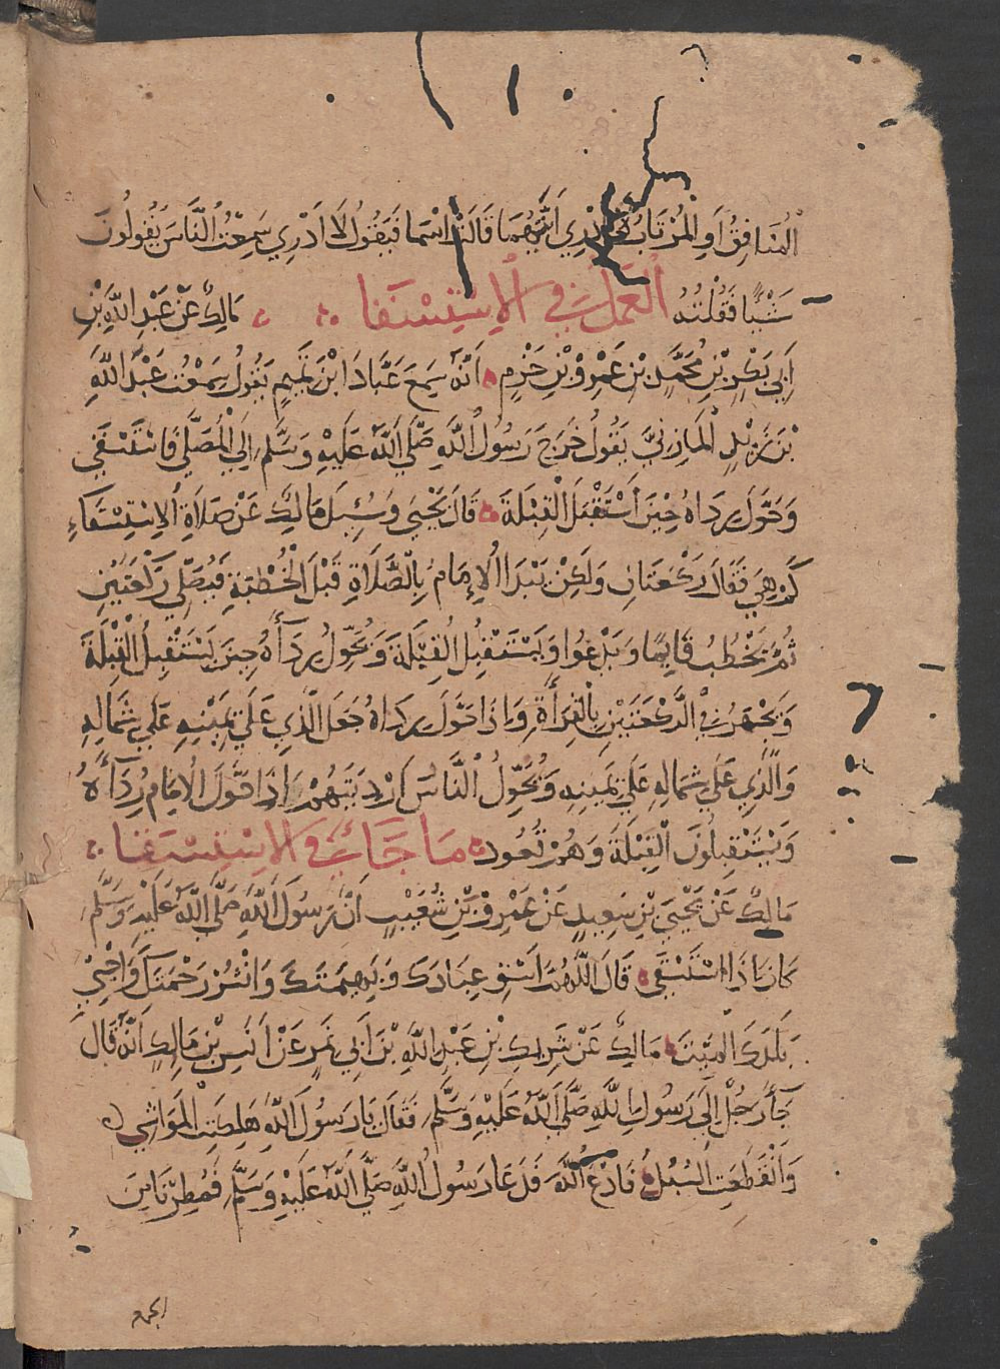 المُنَافِقُ أَوِ المُرْتَابُ لَا أَدْرِي أَيَّتَهُمَا قَالَتْ اسْمَا فَيَقُولُ لَا أَدْرِي سَمِعْتُ النَّاسَ يَقُولُونَ
شَيْئًا فَقُلْتُهُ العَمَلُ فِي الاِسْتِسْقَا مَالِكٌ عَنْ عَبْدِ اللَّهِ بْنِ
أَبِي بَكْرِ بْنِ مُحَمَّدِ بْنِ عَمْرِو بْنِ حَزْمٍ أَنَّهُ سَمِعَ عَبَّادَ ابْنَ تَمِيمٍ يَقُولُ سَمِعْتُ عَبْدَ اللَّهِ
بْنَ زَيْدٍ المَازِنِيَّ يَقُولُ خَرَجَ رَسُولُ اللَّهِ صَلَّى اللَّهُ عَلَيْهِ وَسَلَّمَ إِلَى الْمُصَلَّى فَاسْتَسْقَى
وَحَوَّلَ رِدَاهُ حِينَ اسْتَقْبَلَ الْقِبْلَةَ قَالَ يَحْيَى وَسُئِلَ مَالِكٌ عَنْ صَلَاةِ الاِسْتِسْقَاءِ
كَمْ هِيَ فَقَالَ رَكْعَتَانِ وَلَكِنْ يَبْدَا الْإِمَامُ بِالصَّلَاةِ قَبْلَ الْخُطْبَةِ فَيُصَلِّي رَكْعَتَيْنِ
ثُمَّ يَخْطُبُ قَايِمًا وَيَدْعُوا وَيَسْتَقْبِلُ الْقِبْلَةَ وَيُحَوِّلُ رِدَآءَهُ حِينَ يَسْتَقْبِلُ الْقِبْلَةَ
وَيَجْهَرُ فِي الرَّكْعَتَيْنِ بِالْقِرَأَةِ وَإِذَا حَوَّلَ رِدَاهُ جَعَلَ الَّذِي عَلَى يَمِينِهِ عَلَى شِمَالِهِ
وَالَّذِي عَلَى شِمَالِهِ عَلَى يَمِينِهِ وَيُحَوِّلُ النَّاسُ أَرْدِيَتَهُمْ إِذَا حَوَّلَ الْإِمَامُ رِدَآءَهُ
وَيَسْتَقْبِلُونَ الْقِبْلَةَ وَهُمْ قُعُودٌ مَا جَاءَ فِي الاِسْتِسْقَا
مَالِكٌ عَنْ يَحْيَى بْنِ سَعِيدٍ عَنْ عَمْرِو بْنِ شُعَيْبٍ أَنَّ رَسُولَ اللَّهِ صَلَّى اللَّهُ عَلَيْهِ وَسَلَّمَ
كَانَ إِذَا اسْتَسْقَى قَالَ اللَّهُمَّ اسْقِ عِبَادَكَ وَبَهِيمَتَكَ وَانْشُرْ رَحْمَتَكَ وَاحْيِي
بَلَدَكَ الْمَيِّتَ مَالِكٌ عَنْ شَرِيكِ بْنِ عَبْدِ اللَّهِ بْنِ أَبِي نَمِرٍ عَنْ أَنَسِ بْنِ مَالِكٍ أَنَّهُ قَالَ
جَآءَ رَجُلٌ إِلَى رَسُولِ اللَّهِ صَلَّى اللَّهُ عَلَيْهِ وَسَلَّمَ فَقَالَ يَا رَسُولَ اللَّهِ هَلَكَتِ الْمَوَاشِي
وَانْقَطَعَتِ السُّبُلُ فَادْعُ اللَّهَ فَدَعَا رَسُولُ اللَّهِ صَلَّى اللَّهُ عَلَيْهِ وَسَلَّمَ فَمُطِرْنَا مِنَ
الجمعة